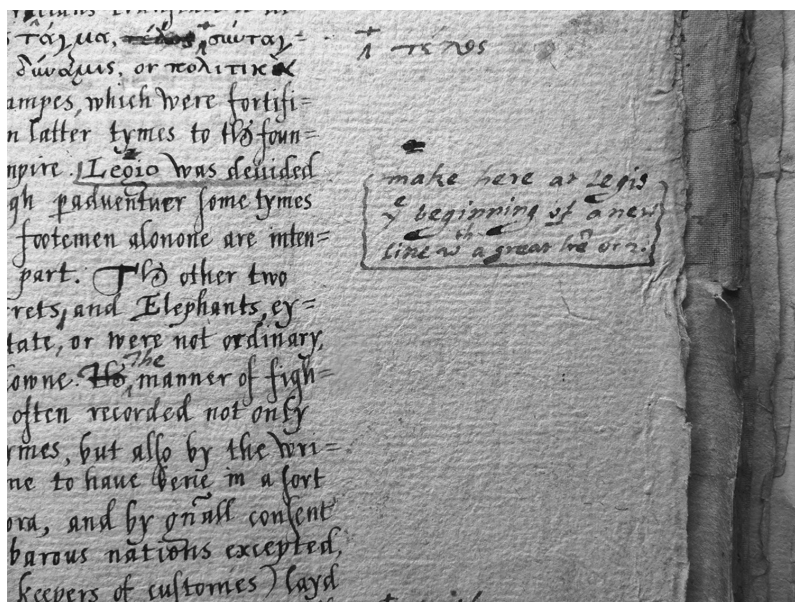 τάγμα, τέλος, σύνταγ=
δύναμις, or πολιτικὰ
ampes, which were fortifi=
n latter tymes to the foun=
mpire. Legio was deuided
gh paduentuer some tymes
footemen alonone are inten=
part. The other two
rets, and Elephants, ey=
tate, or were not ordinary,
owne. The The manner of figh=
often recorded not only
ymes, but also by the wri=
me to haue bene in a sort
ora, and by gnall consent
barous nations excepted,
keepers of customes) layd
τέλος
make here at Legio
ye beginning of a new
line wth a great lre or 2.